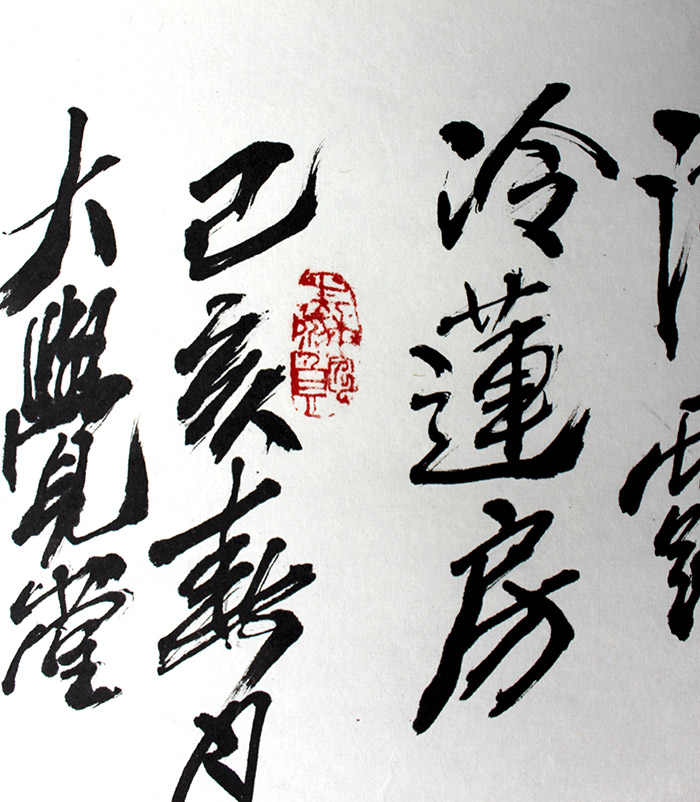 冷蓮房
己亥春月
大覺堂